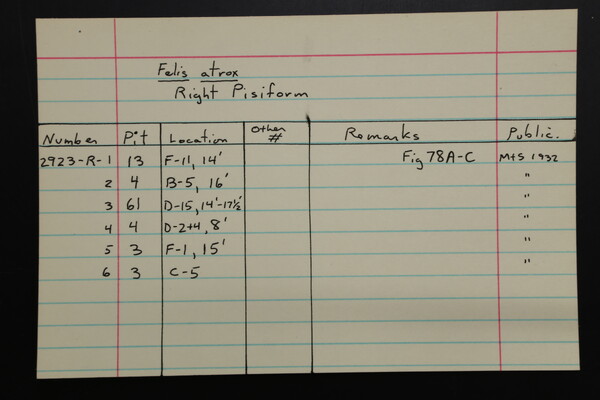 Felis atrox
Right Pisiform
Number Pit Location Other # Remarks Public.
2923-R-1 13 F-11, 14' Fig 78A-C M+S 1932
2 4 B-5, 16' "
3 61 D-15, 14'-17½' "
4 4 D-2+4, 8' "
5 3 F-1, 15' "
6 3 C-5 "